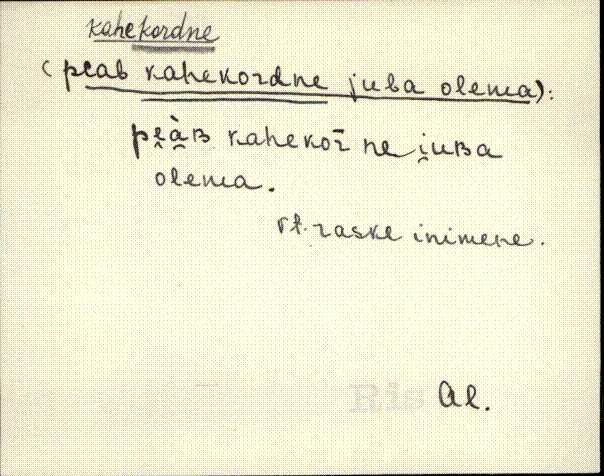 kahekordne
(peab kahekordne juba olema):
pe̮à̮B kahekor̄ne i̮uBa
olema.
vt. raske inimene.
Ris Al.